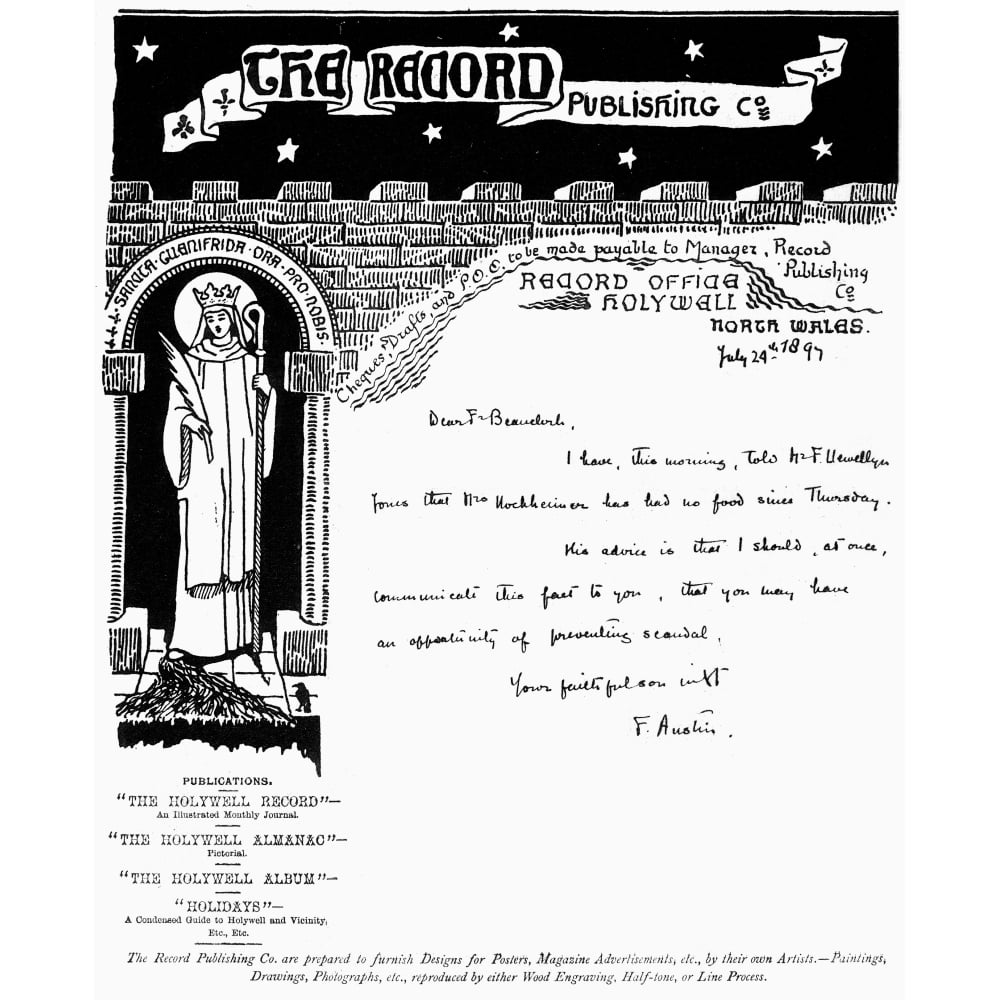 THE RECORD
PUBLISHING Co
SANCTA · GUENIFRIDA · ORA · PRO · NOBIS ·
Cheques, Drafts and P.O.O. to be made payable to Manager, Record
Publishing
Co
RECORD OFFICE
HOLYWELL
NORTH WALES.
July 24th 1897
Dear Fr
I have, this morning, told Mr F. Llewellyn
Jones that Mrs Hochheimer has had no food since Thursday.
His advice is that I should, at once,
communicate this fact to you, that you may have
an opportunity of preventing scandal.
Your faithful son in Xt
F. Austin.
PUBLICATIONS.
"THE HOLYWELL RECORD"—
An Illustrated Monthly Journal.
"THE HOLYWELL ALMANAC"—
Pictorial.
"THE HOLYWELL ALBUM"—
"HOLIDAYS"—
A Condensed Guide to Holywell and Vicinity,
Etc., Etc.
The Record Publishing Co. are prepared to furnish Designs for Posters, Magazine Advertisements, etc., by their own Artists.—Paintings,
Drawings, Photographs, etc., reproduced by either Wood Engraving, Half-tone, or Line Process.